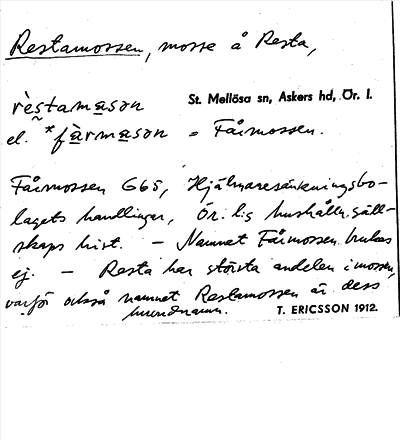 Restamossen, mosse å Resta,
rèstamason St. Mellösa sn, Askers hd, Ör. l.
el. *fàrmason = Fårmossen.
Fårmossen G65, Hjälmaresänkningsbo-
lagets handlingar, Ör. l:s hushålln. säll-
skaps hist. — Namnet Fårmossen brukas
ej. — Resta har största andelen i mossen,
varför också namnet Restamossen är dess
huvudnamn. T. ERICSSON 1912.